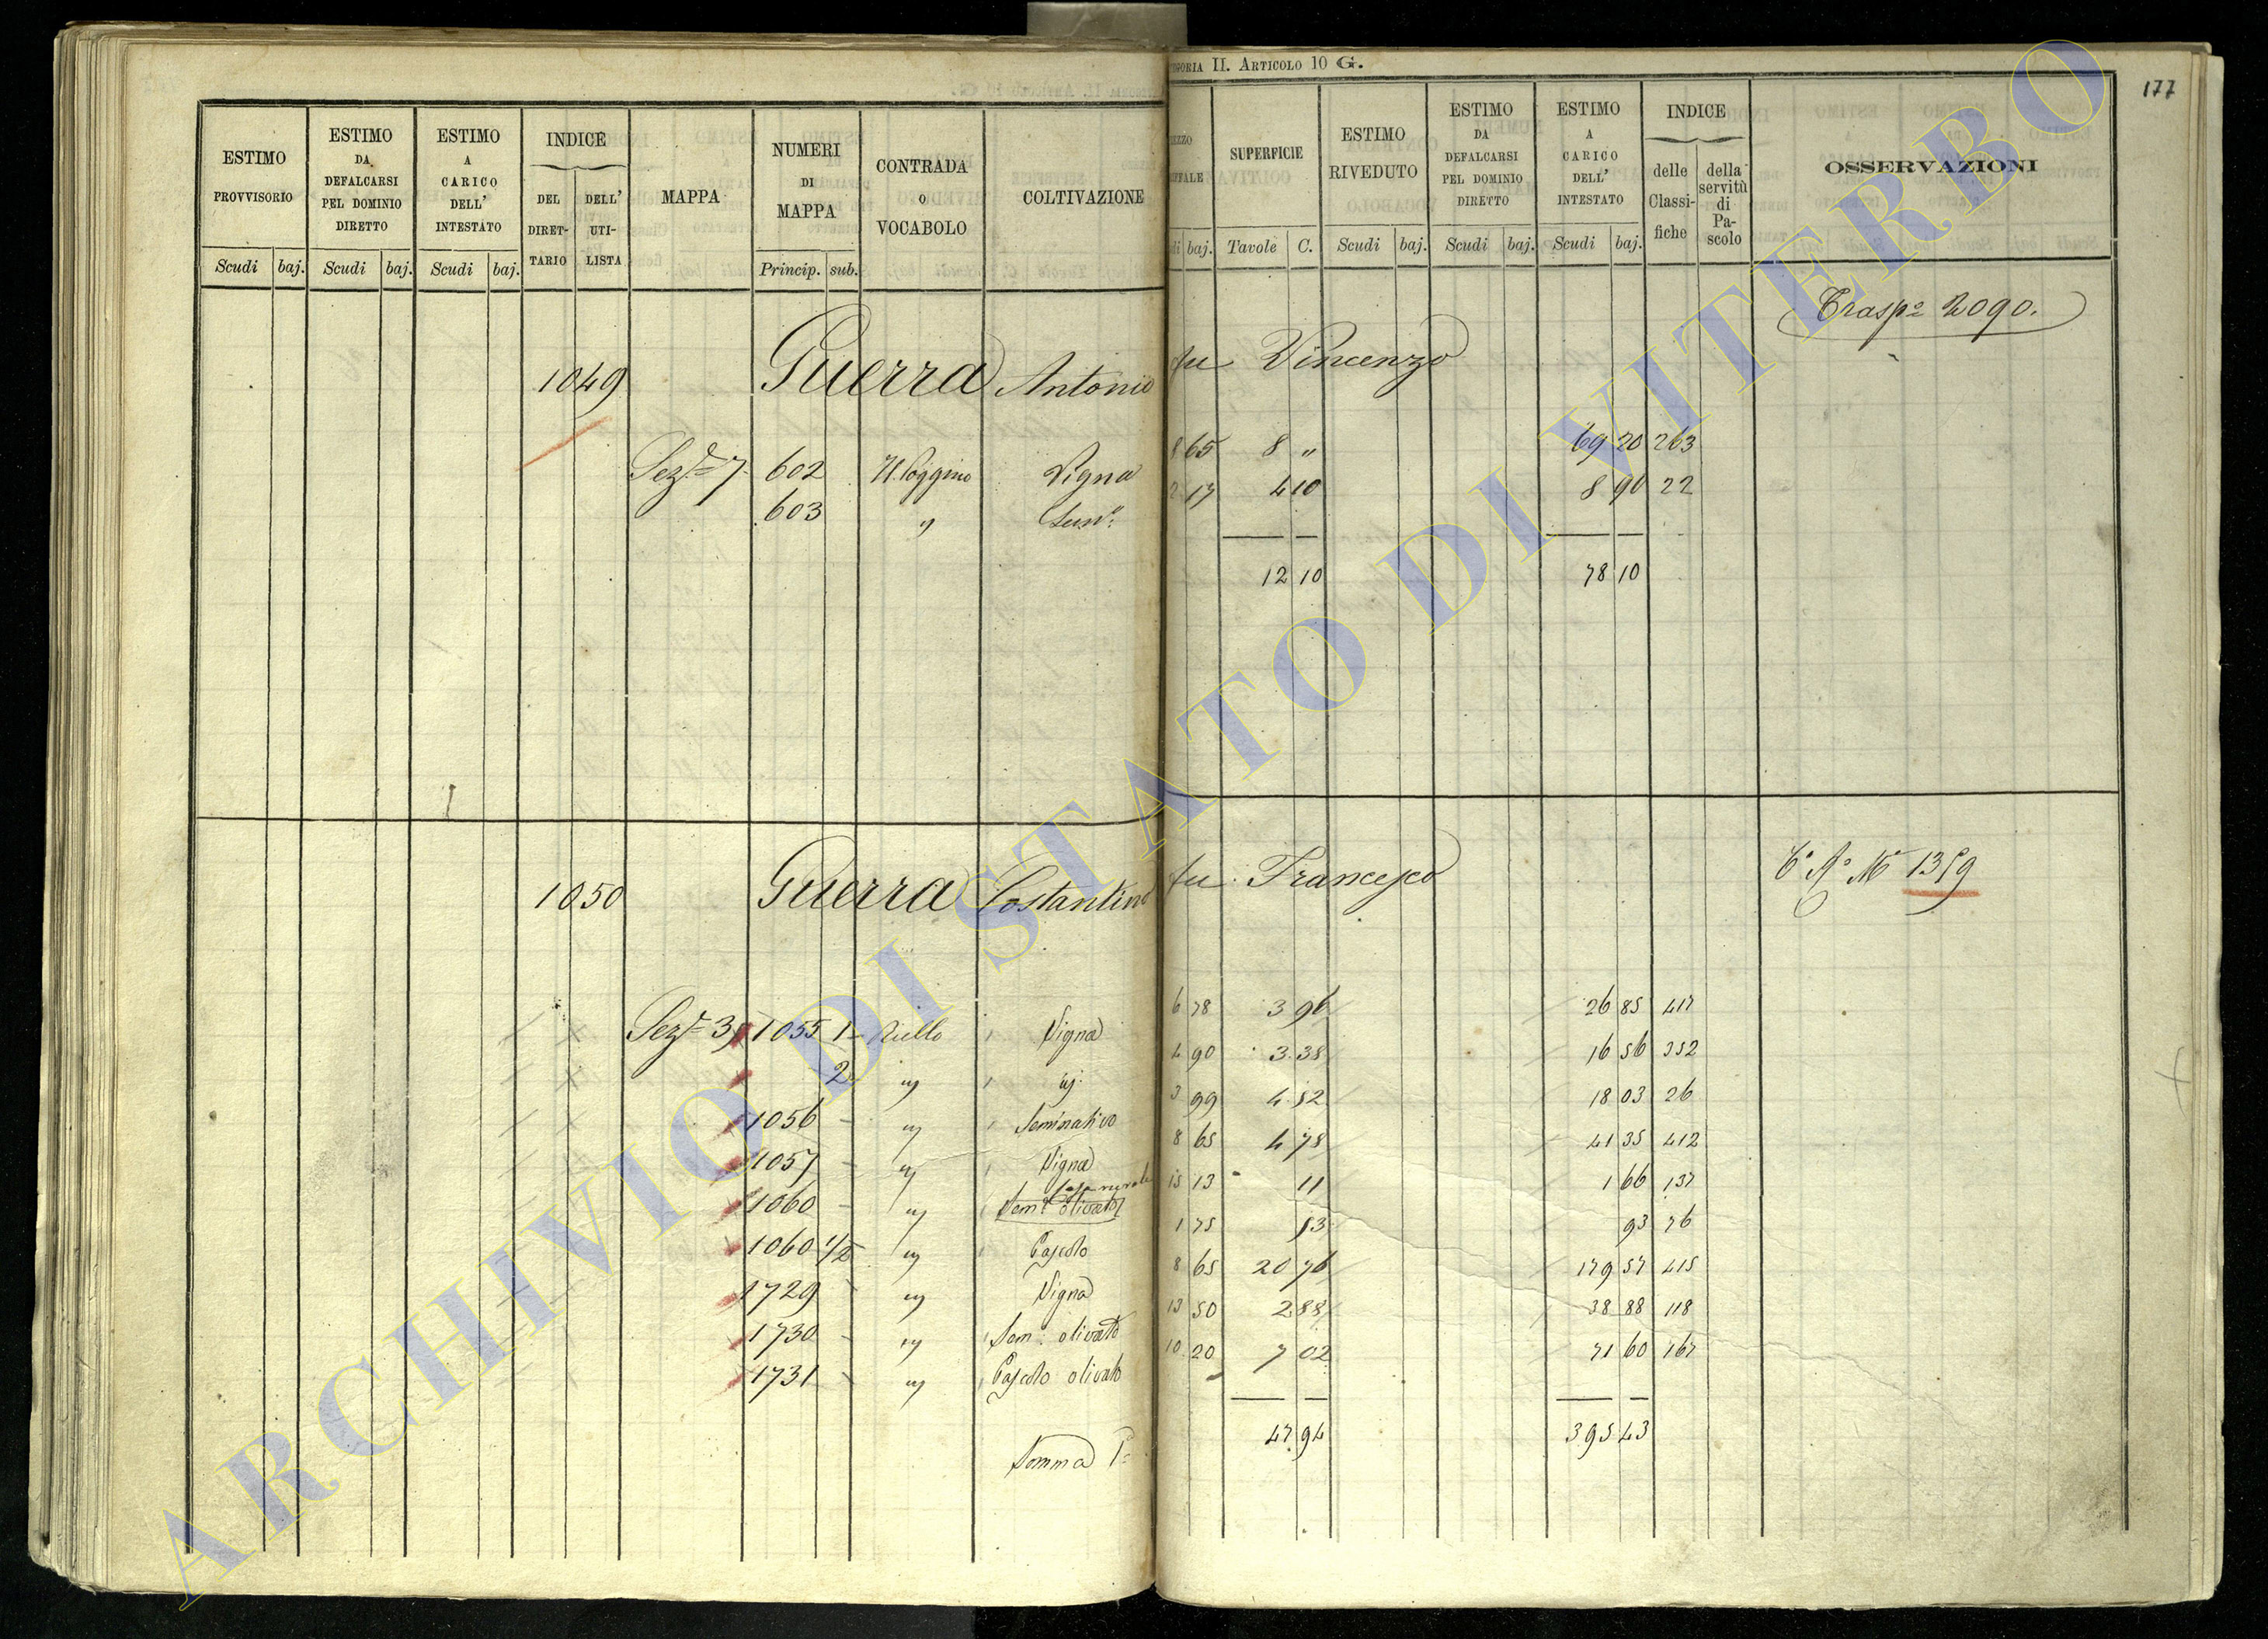 CATEGORIA II. ARTICOLO 10 G.
177
ESTIMO PROVVISORIO Scudi baj.
ESTIMO DA DEFALCARSI PEL DOMINIO DIRETTO Scudi baj.
ESTIMO A CARICO DELL' INTESTATO Scudi baj.
INDICE DEL DIRET-TARIO DELL' UTI-LISTA
MAPPA
NUMERI DI MAPPA Princip. sub.
CONTRADA O VOCABOLO
COLTIVAZIONE
SUPERFICIE Tavole C.
ESTIMO RIVEDUTO Scudi baj.
ESTIMO DA DEFALCARSI PEL DOMINIO DIRETTO Scudi baj.
ESTIMO A CARICO DELL' INTESTATO Scudi baj.
INDICE delle Classi-fiche della servitù di Pa-scolo
OSSERVAZIONI
Trasp.o 2090.
1049 Guerra Antonio fu Vincenzo
Sez.e 7 602 Il Poggino Vigna 8 65 8 " 69 20 263
603 " Sem.o 2 17 4 10 8 90 22
12 10 78 10
1050 Guerra Costantino fu Francesco 1359
Sez.e 39 1055 1 Riello Vigna 6 78 3 96 26 85 417
2 " " 4 90 3 38 16 56 352
1056 " Seminativo 3 99 4 52 18 03 26
1057 " Vigna 8 65 4 78 41 35 412
Casa rurale
1060 " Sem.o olivato 15 13 11 1 66 137
1060 1/2 " Pascolo 1 75 53 93 76
1729 " Vigna 8 65 20 76 179 57 415
1730 " Sem: olivato 13 50 2 88 38 88 118
1731 " Pascolo olivato 10 20 7 02 71 60 167
Somma 47 94 395 43
ARCHIVIO DI STATO DI VITERBO